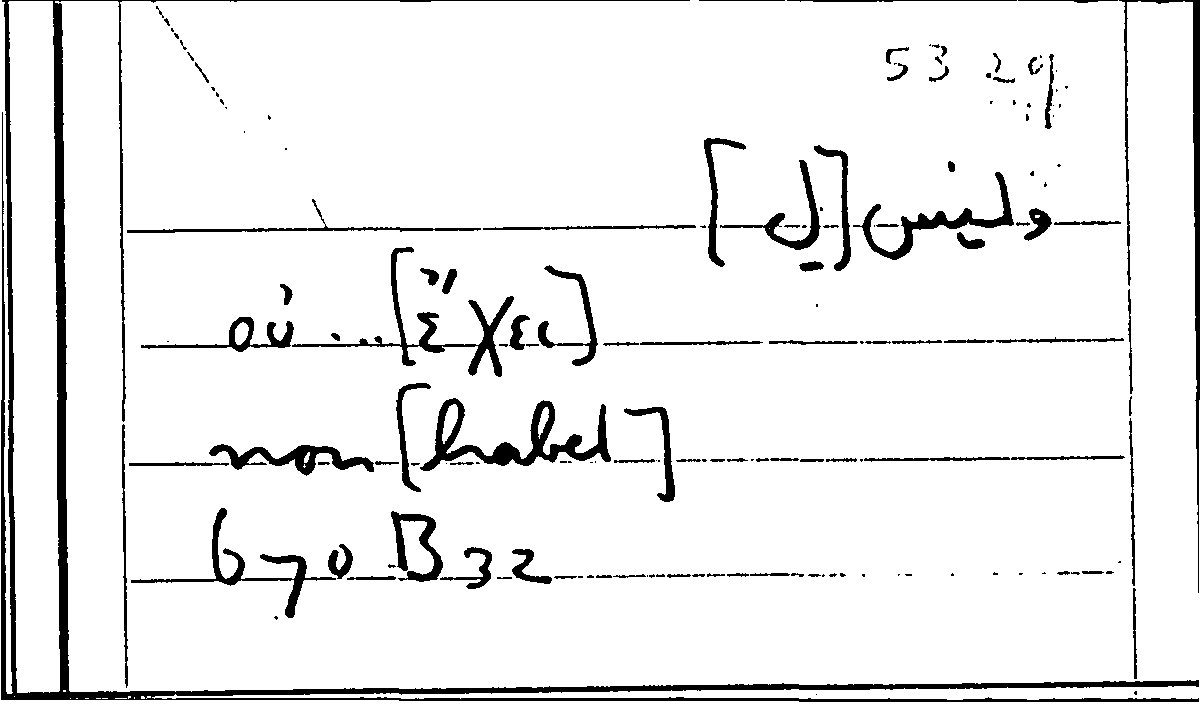 53 29
وليس [لـ]
οὐ ... [ἔχει]
non [habet]
670 B 32